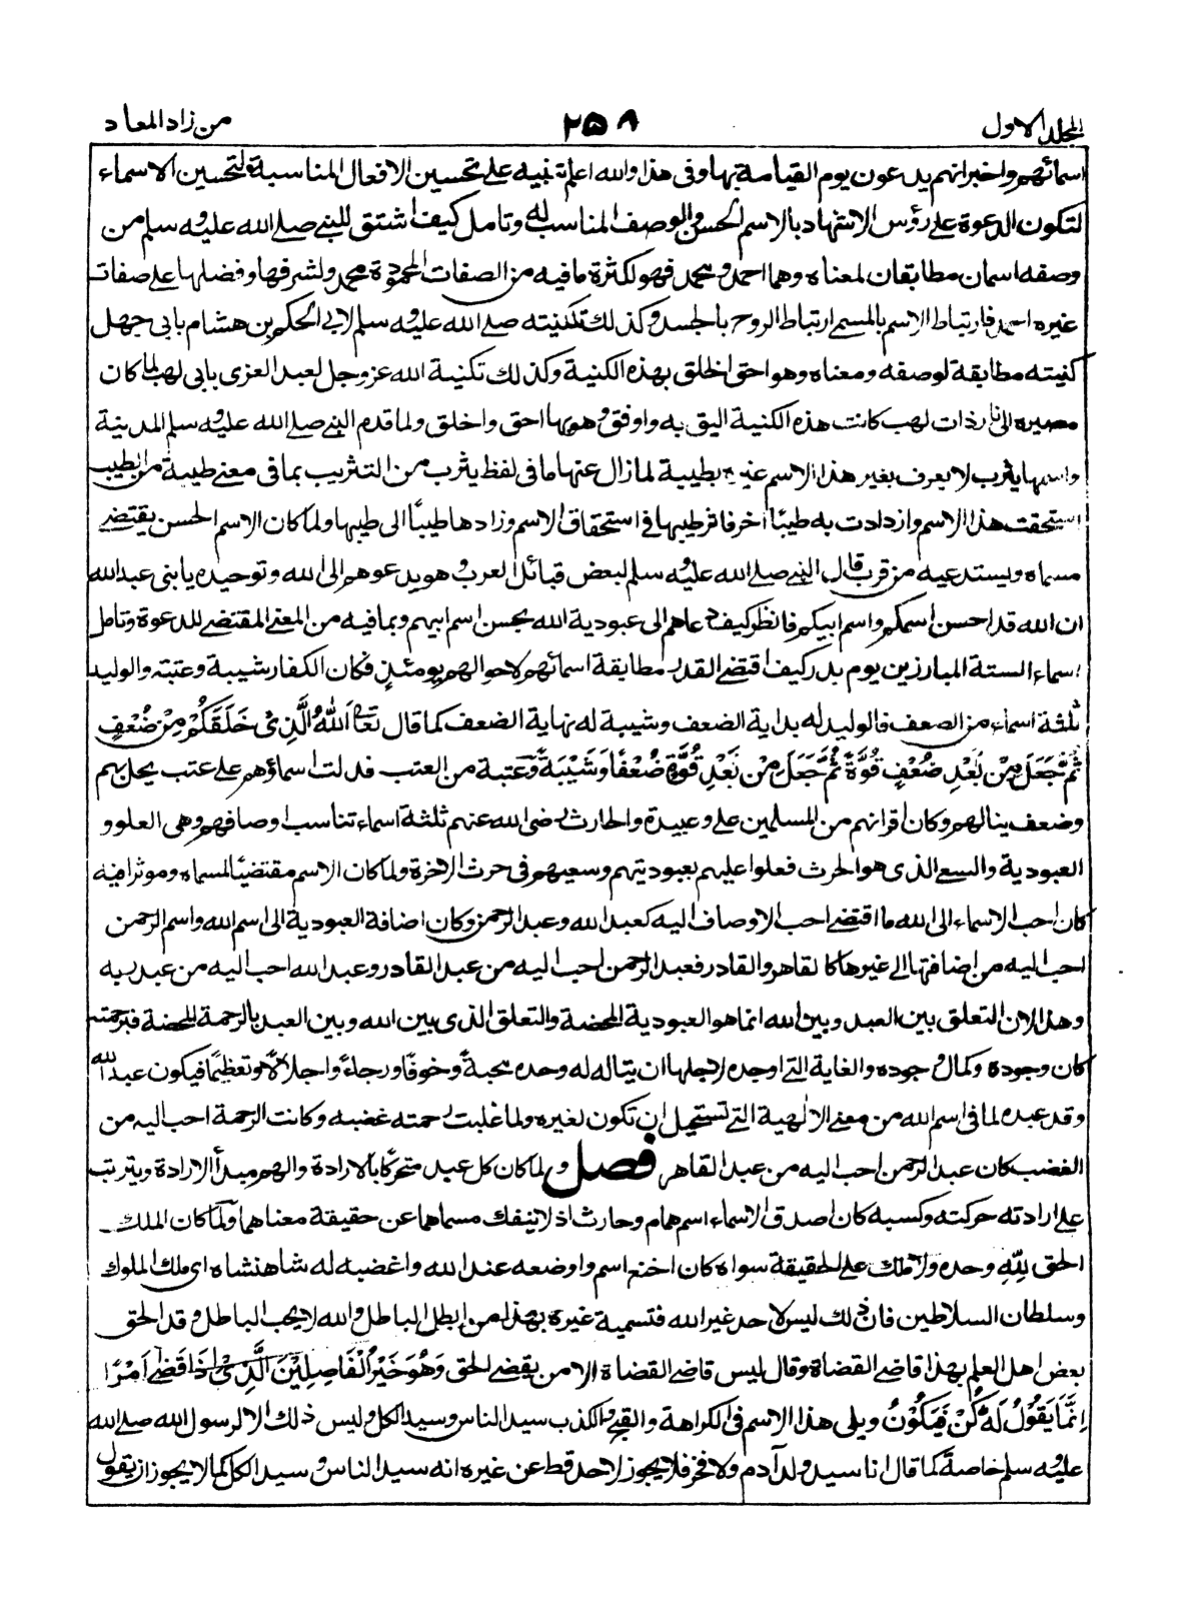 المجلد الاول
٢٥٨
من زاد المعاد
اسمائهم واخبر انهم يدعون يوم القيامة بها وفى هذا والله اعلم تنبيه على تحسين الافعال المناسبة لتحسين الاسماء
لتكون الدعوة على رؤس الاشهاد بالاسم الحسن والوصف المناسب له وتامل كيف اشتق للنبي صلى الله عليه وسلم من
وصفه اسمان مطابقان لمعناه وهما احمد ومحمد فهو لكثرة ما فيه من الصفات المحمودة محمد ولشرفها وفضلها على صفات
غيره احمد فارتباط الاسم بالمسمى ارتباط الروح بالجسد وكذلك تكنيته صلى الله عليه وسلم لابى الحكم بن هشام بابى جهل
كنيته مطابقة لوصفه ومعناه وهو احق الخلق بهذه الكنية وكذلك تكنية الله عز وجل لعبد العزى بابى لهب لما كان
مصيره الى نار ذات لهب كانت هذه الكنية اليق به واوفق وهو بها احق واخلق ولما قدم النبي صلى الله عليه وسلم المدينة
واسمها يثرب لا يعرف بغير هذا الاسم غيره بطيبة لما زال عنها ما فى لفظ يثرب من التثريب بما فى معنى طيبة من الطيب
استحقت هذا الاسم وازدادت به طيبًا آخر فاثر طيبها فى استحقاق الاسم وزادها طيبًا الى طيبها ولما كان الاسم الحسن يقتضى
مسماه ويستدعيه من قرب قال النبي صلى الله عليه وسلم لبعض قبائل العرب وهو يدعوهم الى الله وتوحيده يا بنى عبد الله
ان الله قد احسن اسمكم واسم ابيكم فانظر كيف دعاهم الى عبودية الله بحسن اسم ابيهم وبما فيه من المعنى المقتضى للدعوة وتامل
اسماء الستة المبارزين يوم بدر كيف اقتضى القدر مطابقة اسمائهم لاحوالهم يومئذٍ فكان الكفار شيبة وعتبة والوليد
ثلثة اسماء من الضعف فالوليد له بداية الضعف وشيبة له نهاية الضعف كما قال تعالى اَللّٰهُ الَّذِىْ خَلَقَكُمْ مِنْ ضُعْفٍ
ثُمَّ جَعَلَ مِنْ بَعْدِ ضُعْفٍ قُوَّةً ثُمَّ جَعَلَ مِنْ بَعْدِ قُوَّةٍ ضُعْفًا وَشَيْبَةً وعتبة من العتب فدلت اسماؤهم على عتب يحل بهم
وضعف ينالهم وكان اقرانهم من المسلمين على وعبيدة والحارث رضى الله عنهم ثلثة اسماء تناسب اوصافهم وهى العلو و
العبودية والسعى الذى هو الحرث فعلوا عليهم بعبوديتهم وسعيهم فى حرث الاخرة ولما كان الاسم مقتضيًا لمسماه وموثرا فيه
كان احب الاسماء الى الله ما اقتضى احب الاوصاف اليه كعبد الله وعبد الرحمن وكان اضافة العبودية الى اسم الله واسم الرحمن
احب اليه من اضافتها الى غيرها كالقاهر والقادر فعبد الرحمن احب اليه من عبد القادر وعبد الله احب اليه من عبد ربه
وهذا لان التعلق بين العبد وبين الله انما هو العبودية المحضة والتعلق الذى بين الله وبين العبد بالرحمة المحضة فبرحمته
كان وجوده وكمال وجوده والغاية التى اوجده لاجلها ان يتاله له وحده محبةً وخوفًا ورجاءً واجلالًا وتعظيمًا فيكون عبد الله
وقد عبده لما فى اسم الله من معنى الالهية التى تستحيل ان تكون لغيره ولما غلبت رحمته غضبه وكانت الرحمة احب اليه من
الغضب كان عبد الرحمن احب اليه من عبد القاهر فصل ولما كان كل عبد متحركًا بالارادة والهم مبدأ الارادة ويترتب
على ارادته حركته وكسبه كان اصدق الاسماء اسم همام وحارث اذ لا ينفك مسماهما عن حقيقة معناهما ولما كان الملك
الحق لِلّٰهِ وحده ولا ملك على الحقيقة سواه كان اخنع اسم واوضعه عند الله واغضبه له شاهنشاه اى ملك الملوك
وسلطان السلاطين فان ذلك ليس لاحد غير الله فتسمية غيره بهذا من ابطل الباطل والله لا يحب الباطل وقد الحق
بعض اهل العلم بهذا قاضى القضاة وقال ليس قاضى القضاة الا من يقضى الحق وَهُوَ خَيْرُ الْفَاصِلِيْنَ الَّذِىْ اِذَا قَضٰى اَمْرًا
اِنَّمَا يَقُوْلُ لَهٗ كُنْ فَيَكُوْنُ ويلى هذا الاسم فى الكراهة والقبح والكذب سيد الناس وسيد الكل وليس ذلك الا لرسول الله صلى الله
عليه وسلم خاصةً كما قال انا سيد ولد آدم ولا فخر فلا يجوز لاحد قط عن غيره انه سيد الناس وسيد الكل كما لا يجوز ان يقول